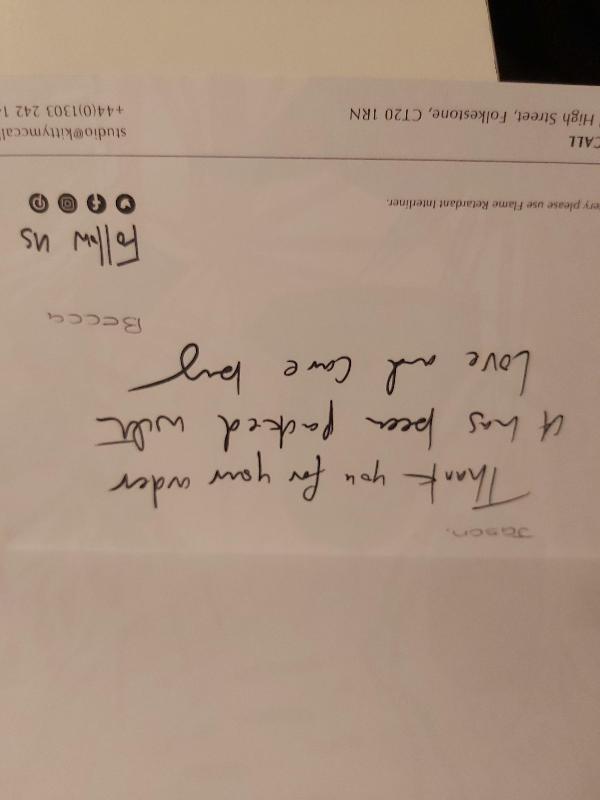 Jason.
Thank you for your order
it has been packed with
Love and Care by
Becca
Follow us
ery please use Flame Retardant Interliner.
CALL
High Street, Folkestone, CT20 1RN
studio@kittymccal
+44(0)1303 242 1